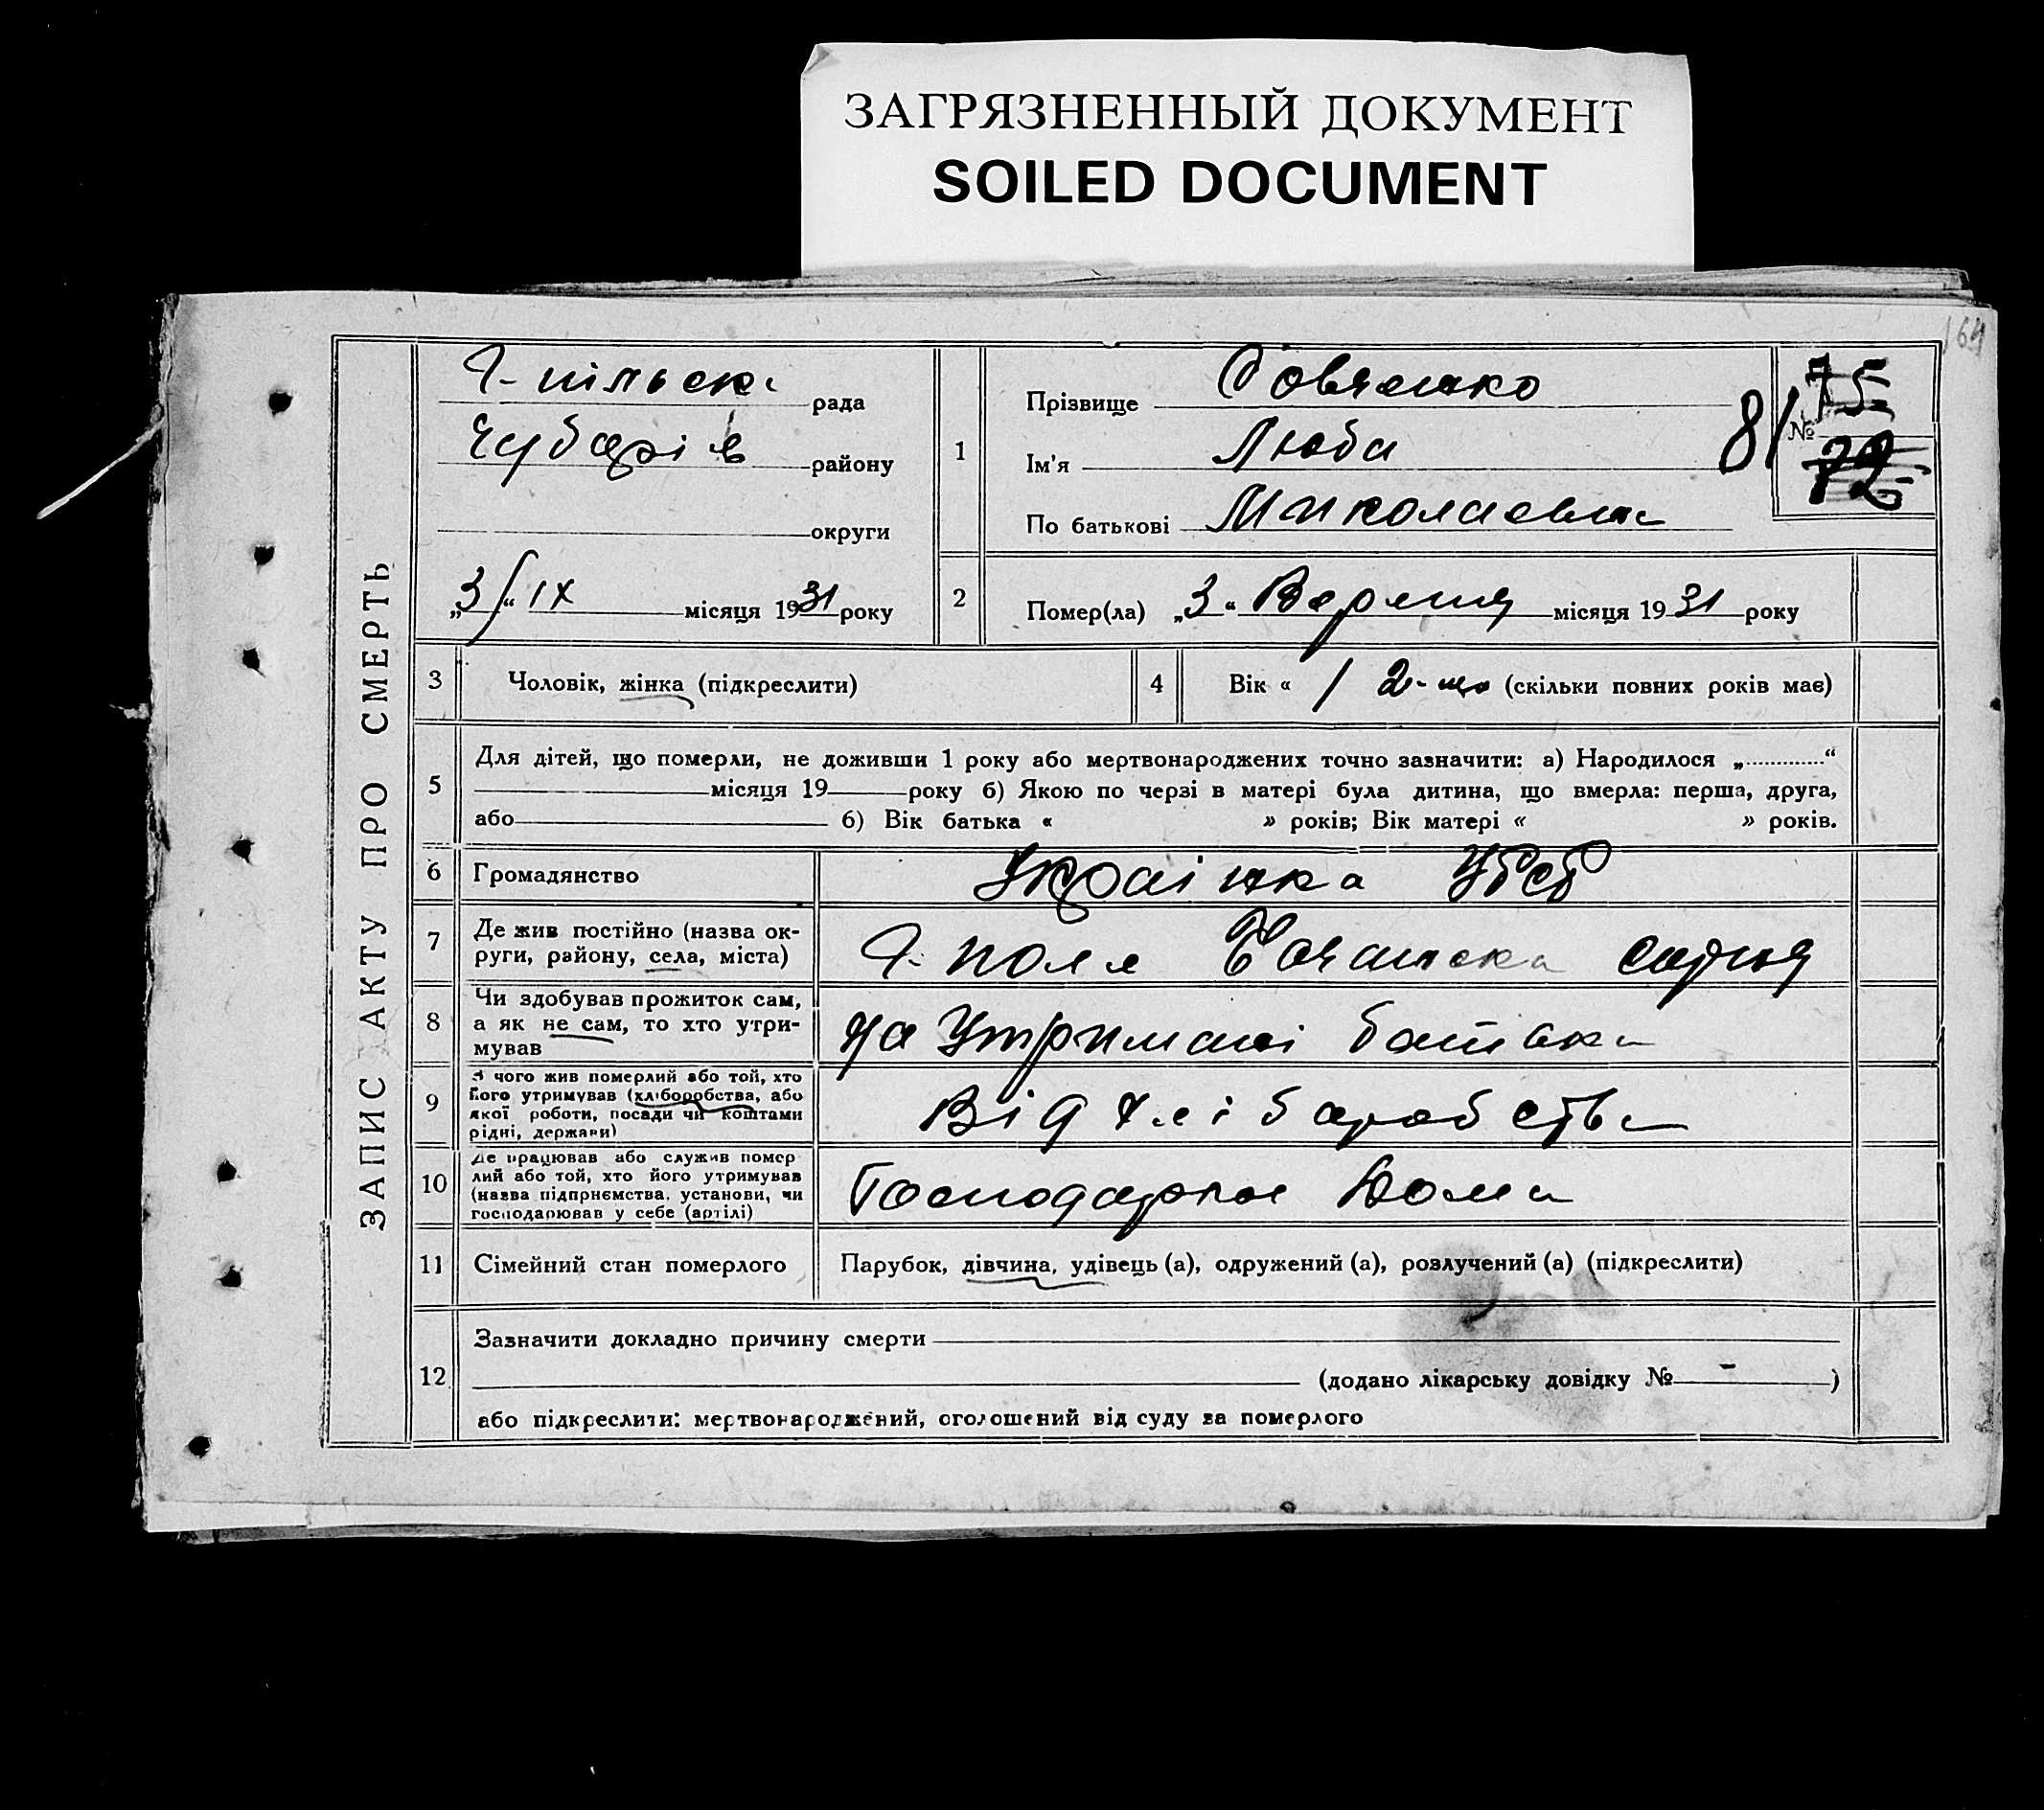 ЗАГРЯЗНЕННЫЙ ДОКУМЕНТ
SOILED DOCUMENT
164
ЗАПИС АКТУ ПРО СМЕРТЬ
рада
Чубарів району
округи
„3“ IX місяця 1931 року
1
Прізвище
Ім'я Люба
По батькові Миколаевна
81
№ 75
72
2
Помер(ла) „3“ Вересня місяця 1931 року
3
Чоловік, жінка (підкреслити)
4
Вік « / 2- (скільки повних років має)
5
Для дітей, що померли, не доживши 1 року або мертвонароджених точно зазначити: а) Народилося „.............“
місяця 19 року б) Якою по черзі в матері була дитина, що вмерла: перша, друга,
або б) Вік батька « » років; Вік матері « » років.
6
Громадянство
Українка УССР
7
Де жив постійно (назва ок-
руги, району, села, міста)
поле
8
Чи здобував прожиток сам,
а як не сам, то хто утри-
мував
На Утримані батька
9
З чого жив померлий або той, хто
його утримував (хліборобства, або
якої роботи, посади чи коштами
рідні, держави)
Від хліборобства
10
Де працював або служив помер
лий або той, хто його утримував
(назва підприємства, установи, чи
господарював у себе (артілі)
Господарює Дома
11
Сімейний стан померлого
Парубок, дівчина, удівець (а), одружений (а), розлучений (а) (підкреслити)
12
Зазначити докладно причину смерти
(додано лікарську довідку № - )
або підкреслити: мертвонароджений, оголошений від суду за померлого